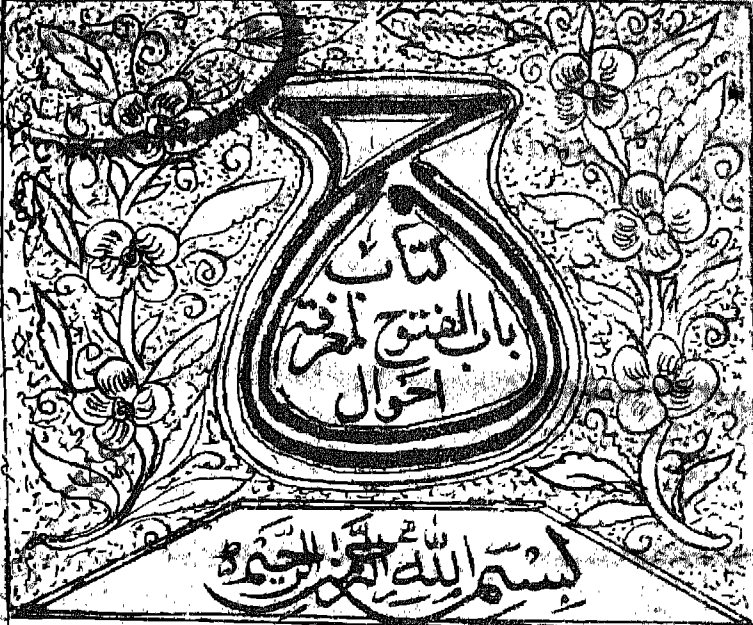 كتاب
باب الفتوح لمعرفة
احوال
بسم الله الرحمن الرحيم